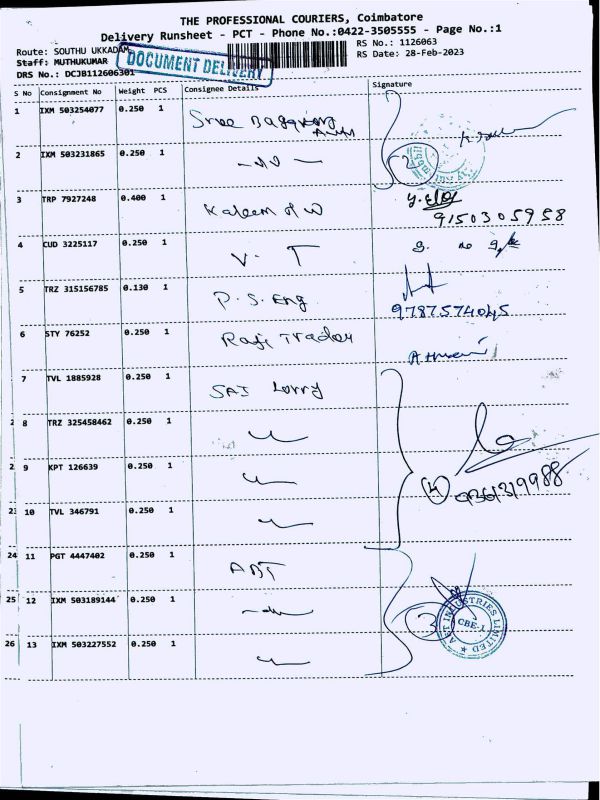 THE PROFESSIONAL COURIERS, Coimbatore
Delivery Runsheet - PCT - Phone No.:0422-3505555 - Page No.:1
Route: SOUTHU UKKADAM
RS No.: 1126063
Staff: MUTHUKUMAR
RS Date: 28-Feb-2023
DOCUMENT DELIVERY
DRS No.: DCJB112606301
S No Consignment No Weight PCS Consignee Details Signature
1 IXM 503254077 0.250 1 Sree
2 IXM 503231865 0.250 1 2
3 TRP 7927248 0.400 1 Kaleem
9150305958
4 CUD 3225117 0.250 1 V. T
5 TRZ 315156785 0.130 1 P. S. Eng
9787574045
6 STY 76252 0.250 1
7 TVL 1885928 0.250 1 SAI Lorry
8 TRZ 325458462 0.250 1
9 KPT 126639 0.250 1 4 9361319988
23 10 TVL 346791 0.250 1
24 11 PGT 4447402 0.250 1 ABT
25 12 IXM 503189144 0.250 1 3 ABT INDUSTRIES LIMITED CBE-1
26 13 IXM 503227552 0.250 1